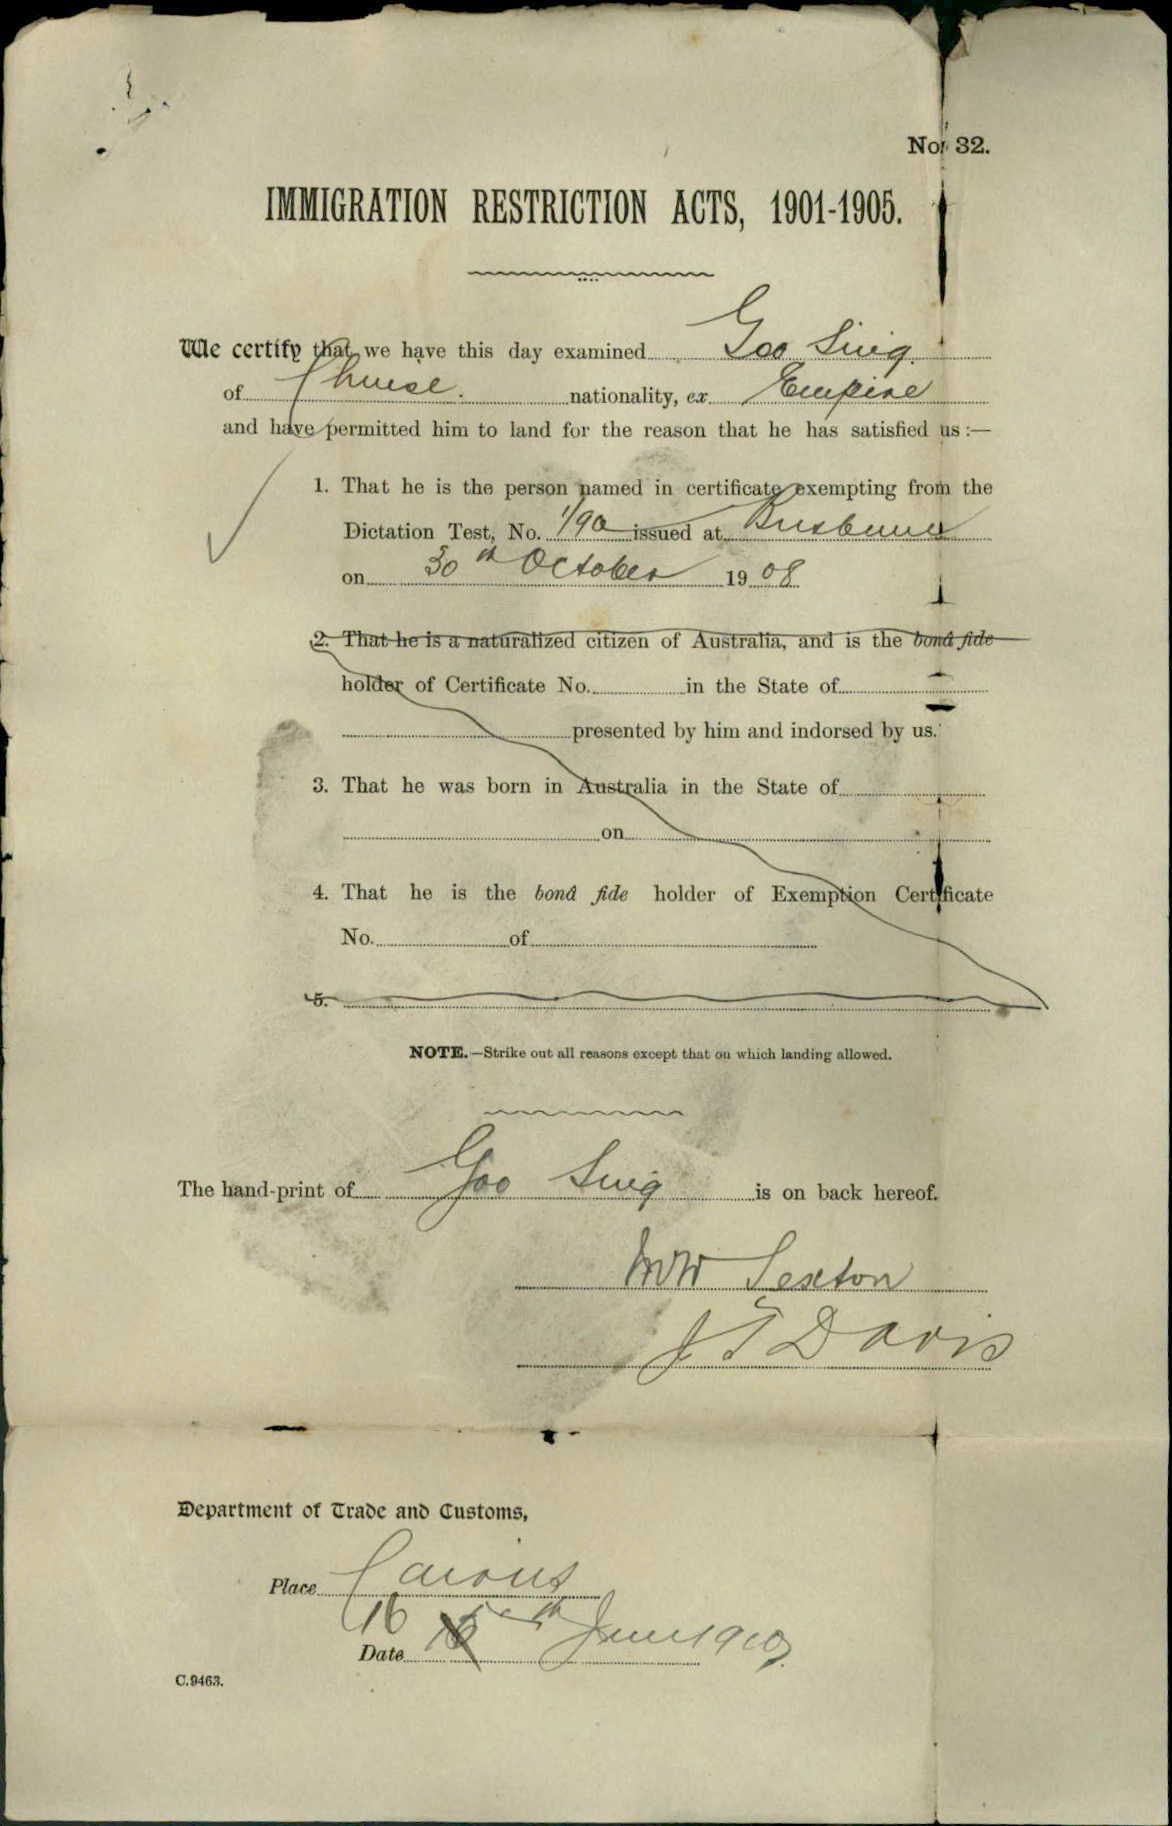 No. 32.
IMMIGRATION RESTRICTION ACTS, 1901-1905.
We certify that we have this day examined Goo Sing.
of Chinese. nationality, ex Empire
and have permitted him to land for the reason that he has satisfied us :—
1. That he is the person named in certificate exempting from the
Dictation Test, No. 1/90 issued at Brisbane
on 30th October 1908
2. That he is a naturalized citizen of Australia, and is the bonâ fide
holder of Certificate No. in the State of
presented by him and indorsed by us.
3. That he was born in Australia in the State of
on
4. That he is the bonâ fide holder of Exemption Certificate
No. of
5.
NOTE.—Strike out all reasons except that on which landing allowed.
The hand-print of Goo Sing is on back hereof.
MW Sexton
J T Davis
Department of Trade and Customs,
Place Cairns
16
Date th June 1910.
C.9463.